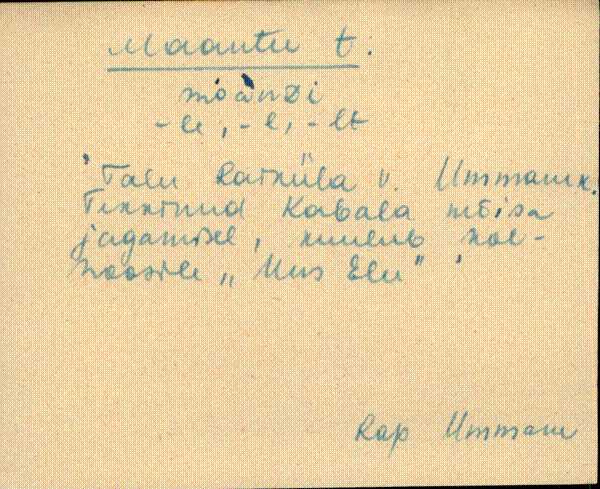 Maantee t.
moanDi
-le, -l, -lt
Talu Raikküla v. Ummaru k.
Tekkinud Kabala mõisa
jagamisel, kuulub kol-
hoosile „Uus Elu"
Rap Ummaru